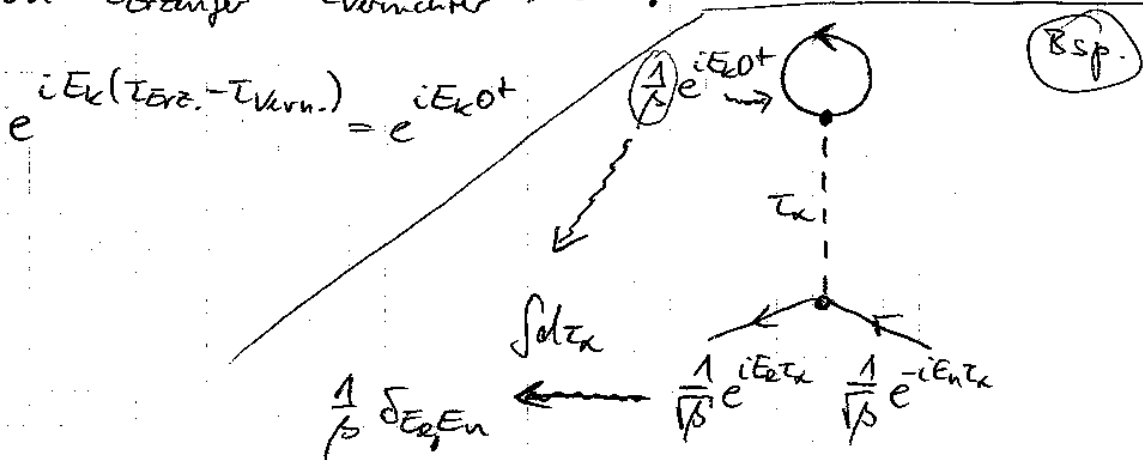 τ_Erzeuger τ_Vernichter
e^{iE_k(τ_Erz. - τ_Vern.)} = e^{iE_k 0^+}
1/β e^{iE_k 0^+}
Bsp.
τ_κ
∫dτ_κ
1/β δ_{E_e, E_n}
1/√β e^{iE_e τ_κ} 1/√β e^{-iE_n τ_κ}